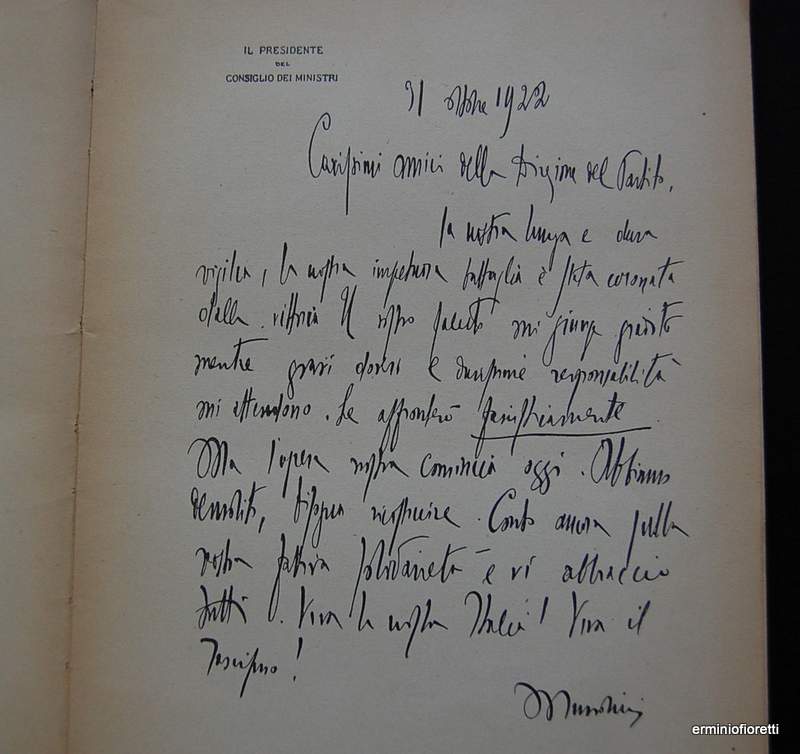 IL PRESIDENTE
DEL
CONSIGLIO DEI MINISTRI
31 ottobre 1922
Carissimi amici della Direzione del Partito,
la nostra lunga e dura
vigilia, la nostra impetuosa battaglia è stata coronata
dalla vittoria Il vostro saluto mi giunge gradito
mentre gravi doveri e durissime responsabilità
mi attendono. Le affronterò fascisticamente.
Ma l'opera nostra comincia oggi. Abbiamo
demolito, bisogna ricostruire. Conto ancora sulla
vostra fattiva solidarietà e vi abbraccio
tutti. Viva la nostra Italia! Viva il
Fascismo!
Mussolini
erminiofioretti